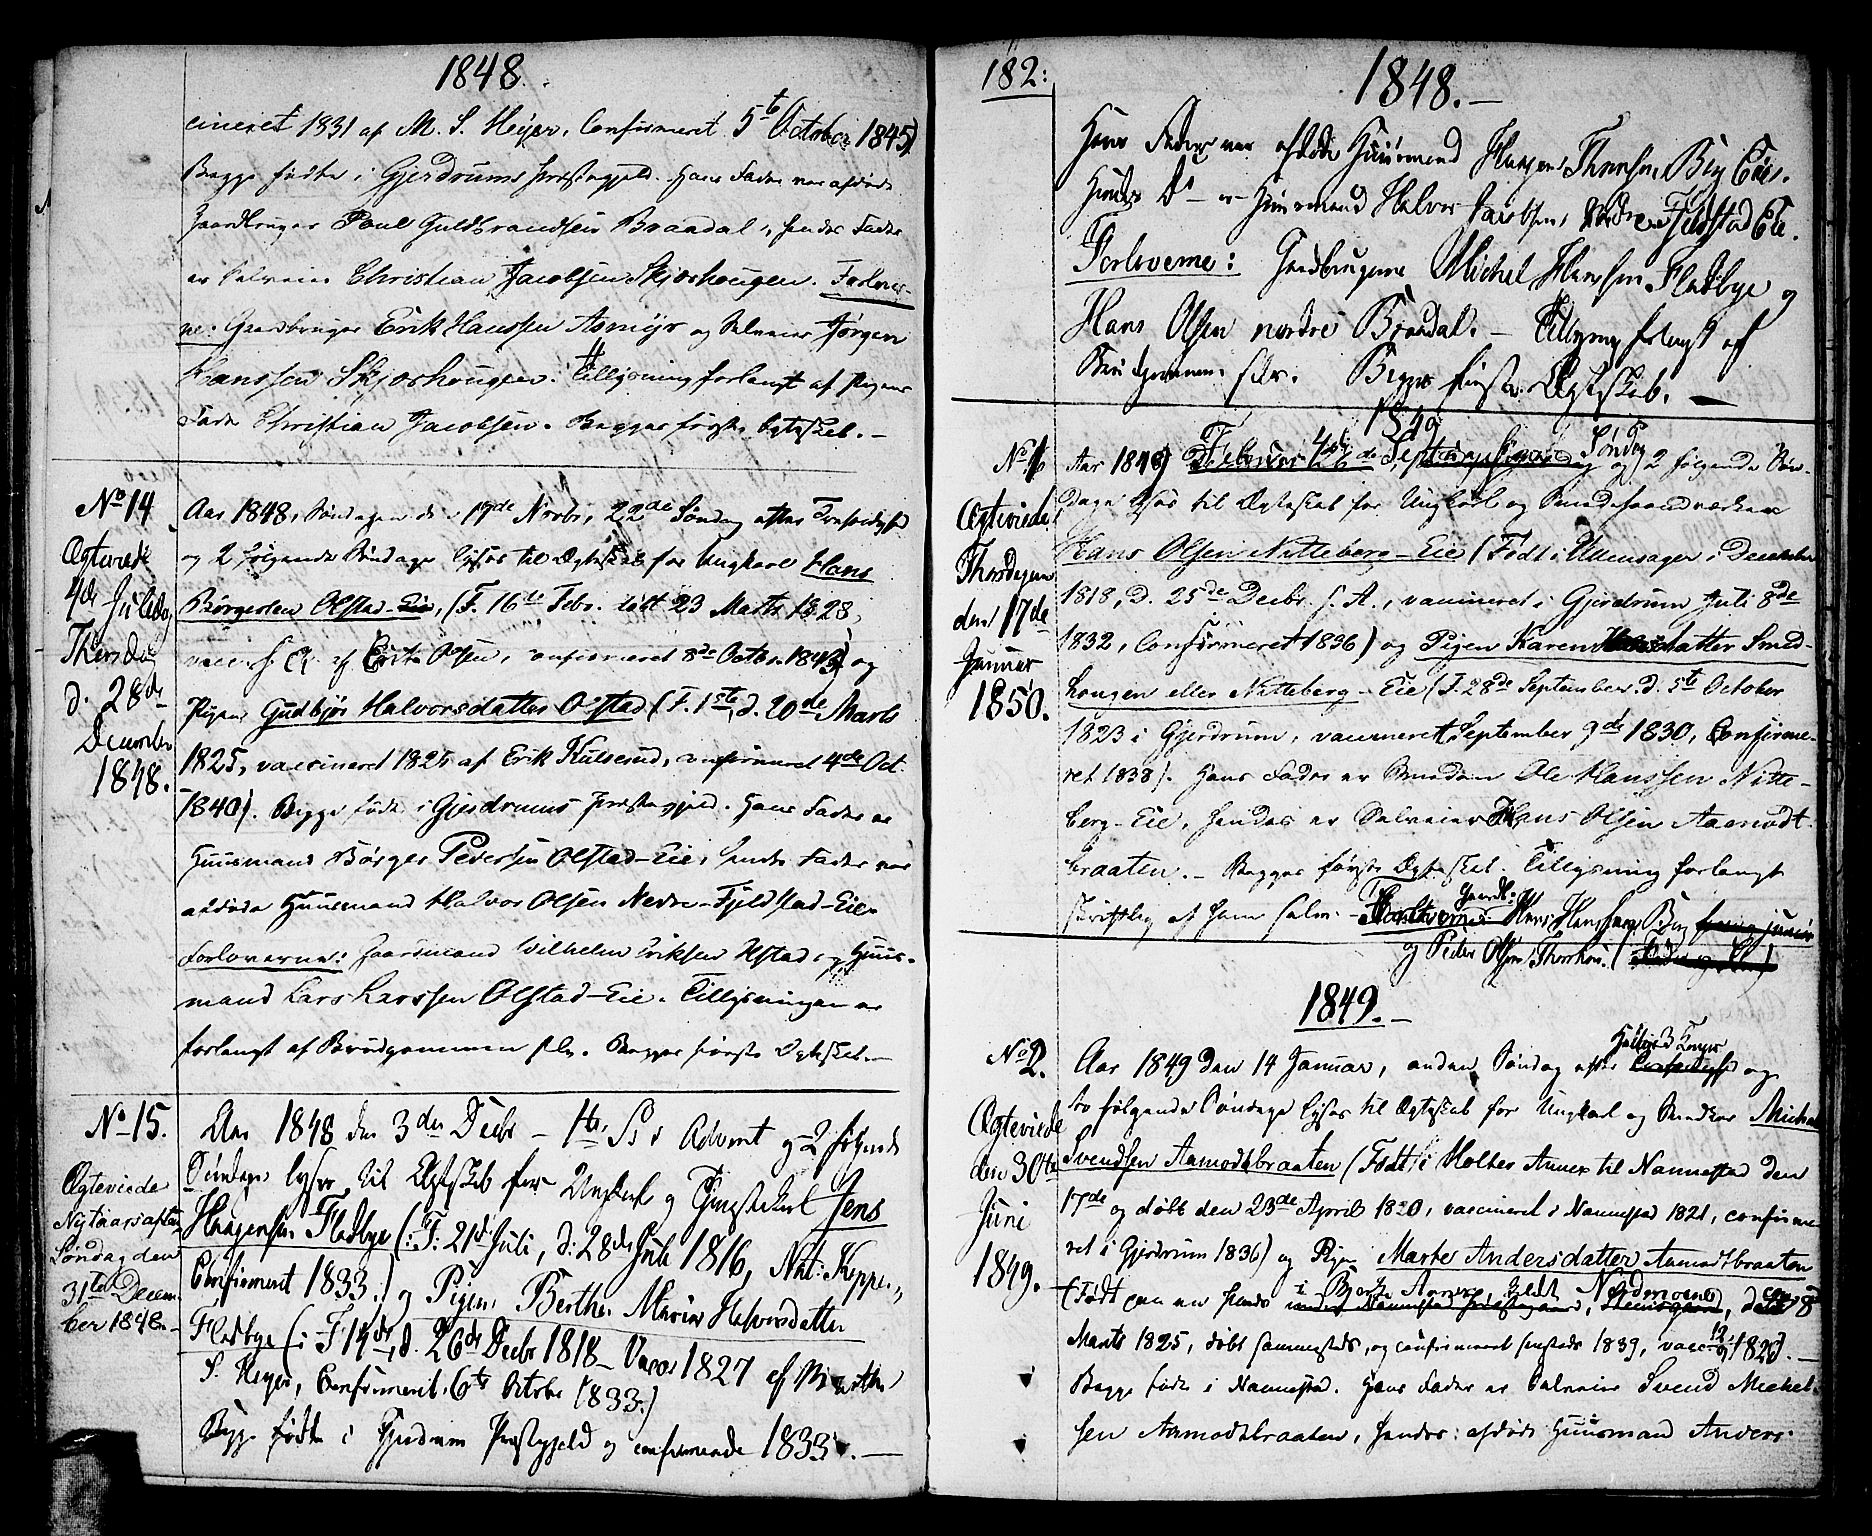 1848.
cineret 1831 af M. S. Heyer, Confirmeret 5te October 1845)
Begge fødte i Gjerdrums Præstegjeld. Hans Fader var afdøde
Gaardbruger Poul Guldbrandsen Braadal, hendes Fader
er Selveier Christian Jacobsen Skjøshougen. Forlover-
ne: Gaardbruger Erik Hanssen Asmyr og Selveier Jørgen
Hanssen Skjøshougen. Tillysning forlangt af Pigens
Fader Christian Jacobsen. Begges første Egteskab. –
No 14
Ægteviede
4de Juledag
Thorsdag
d. 28de
December
1848.
Aar 1848, Søndagen d. 19de Novbr, 22de Søndag efter Trefoldighed
og 2 følgende Søndage lyses til Ægteskab for Ungkarl Hans
Børgersen Olstad-Eie, (F. 16de Febr. døbt 23 Marts 1828,
vacci. s. A. af Erik Olsen, confirmeret 8de Octbr. 1843) og
Pigen Gudbjør Halvorsdatter Olstad (F. 1ste, d. 20de Marts
1825, vaccineret 1825 af Erik Kulserud, confirmeret 4de Oct.
1840). Begge fødte i Gjerdrums Præstegjeld. Hans Fader er
Huusmand Børger Pedersen Olstad-Eie, hendes Fader var
afdøde Huusmand Halvor Olsen Nedre-Fjeldstad-Eie.
Forloverne: Gaardmand Wilhelm Eriksen Olstad og Huus-
mand Lars Larssen Olstad-Eie. Tillysningen er
forlangt af Brudgommen selv. Begges første Egteskab. –
No 15.
Ægteviede
Nytaarsaften
Søndag den
31te Decem-
ber 1848. –
Aar 1848 den 3die Decbr – 1ste S. i Advent og 2 følgende
Søndage lyses til Ægteskab for Ungkarl og Tjenestekarl Jens
Haagensen Fladbye (: F. 21de Juli, d: 28de Juli 1816, Nat: Kopper,
Confirmeret 1833.) og Pigen Berthe Marie Halvorsdatter
Fladbye (: F 14de, d. 26de Decbr 1818 – Vacc 1827 af
S. Heyer, Confirmeret 6te Octobr 1833.)
Begge fødte i Gjerdrum Præstegjeld og confirmerede 1833. –
182:
1848. –
Hans Fader var afdøde Huusmand Haagen Thoresen Bry Eie.
Hendes Do – er Huusmand Halvor Jacobsen, Nedre Fjeldstad Eie.
Forloverne: Gaardbrugerne Michel Hanssen Fladbye og
Hans Olsen nordre Braadal. – Tillysning forlangt af
Brudgommen selv. Begges første Ægteskab. –
1849
No 1
Ægteviede
Thorsdagen
den 17de
Januar
1850.
Aar 1849 Februar 4de Søndag og 2 følgende Søn-
dage lyses til Ægteskab for Ungkarl og Smedehaandværker
Hans Olsen Nitteberg-Eie (Født i Ullensager i December
1818, D. 25de Decbr. s. A., vaccineret i Gjerdrum Juli 8de
1832, Confirmeret 1836) og Pigen Karen Hansdatter Smed-
hougen eller Nitteberg-Eie (F. 28de September d. 5te October
1823 i Gjerdrum, vaccineret September 9de 1830, Confirme-
ret 1838). Hans Fader er Smeden Ole Hanssen Nitte-
berg-Eie, hendes er Selveier Hans Olsen Aamodt-
braaten. – Begges første Ægteskab. Tillysning forlangt
skriftlig af ham selv. – Forloverne Gaardb: Hans Hanssen
og Peder Olsen
1849. –
No 2.
Ægteviede
den 30te
Juni
1849.
Aar 1849 den 14 Januar, anden Søndag efter Hellig 3 Konger og
to følgende Søndage lyses til Ægteskab for Ungkarl og Snedker Michel
Svendsen Aamodtbraaten (Født i Holter Annex til Nannestad den
17de og døbt den 23de April 1820, vaccineret i Nannestad 1821, confirme-
ret i Gjerdrum 1836) og Pigen Marte Andersdatter Aamodtbraaten
(Født i Bjerke Annex, Nordmoen, den 8de
Marts 1825, døbt sammesteds, og confirmeret sammesteds 1839, vacc.
Begge fødte i Nannestad. Hans Fader er Selveier Svend Michel-
sen Aamodtbraaten, hendes: afdøde Huusmand Anders